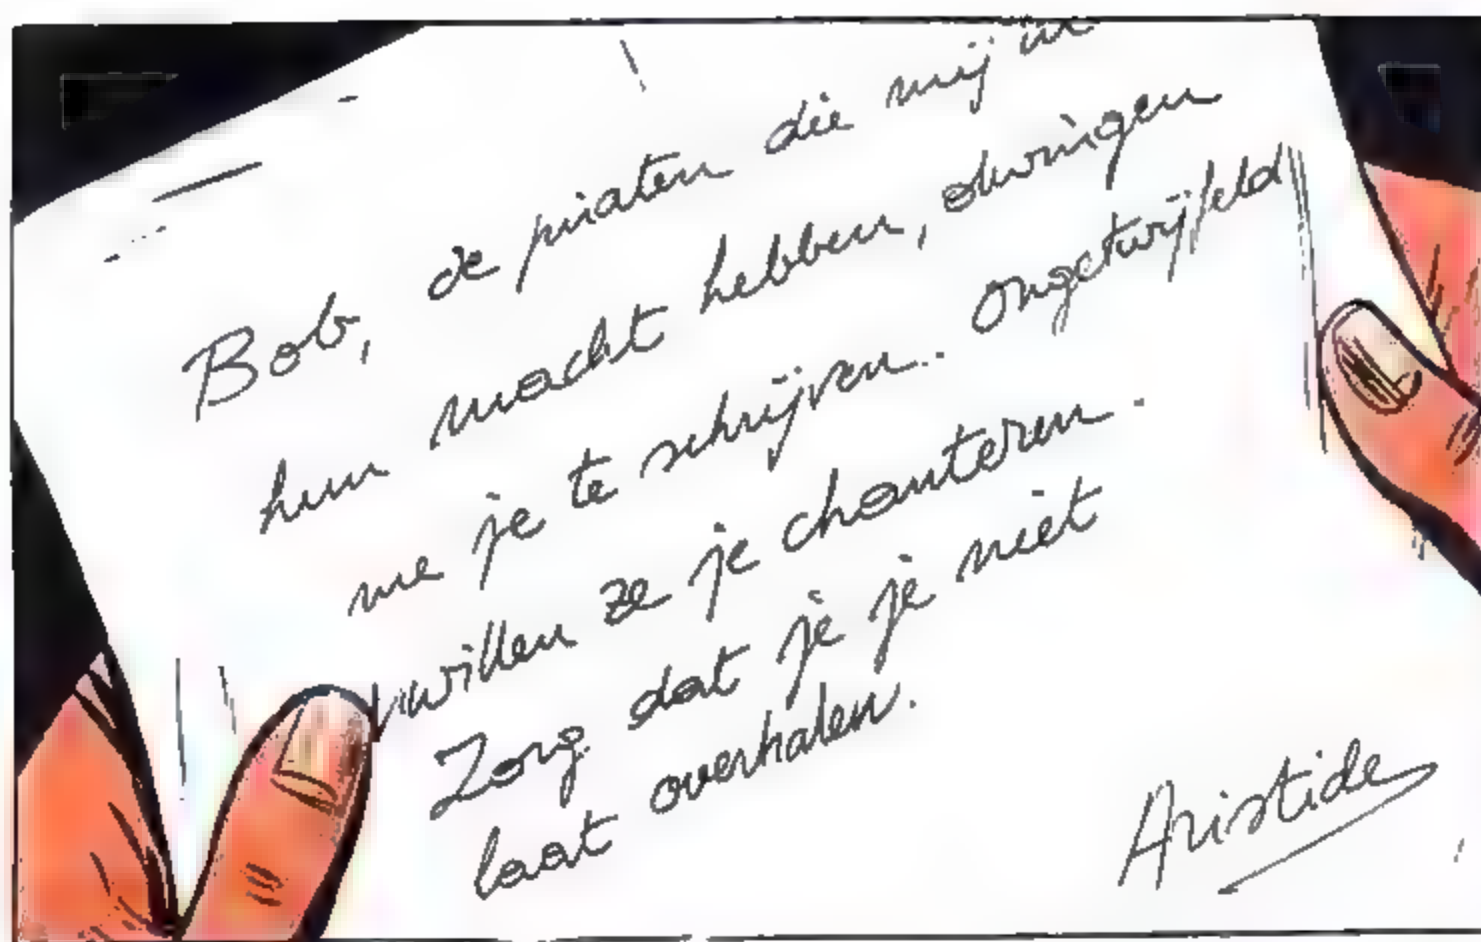 Bob, de piraten die mij in
hun macht hebben, dwingen
me je te schrijven.. Ongetwijfeld
willen ze je chanteren.
Zorg dat je je niet
laat overhalen.
Aristide